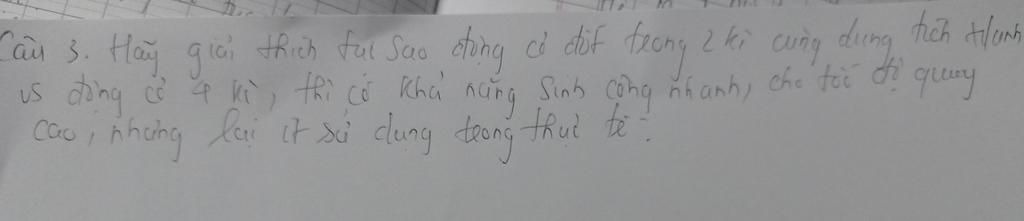 Câu 3. Hãy giải thích tại sao động cơ đốt trong 2 kì cùng dung tích
vs động cơ 4 kì, thì có khả năng sinh công nhanh, cho tốc độ quay
cao, nhưng lại ít sử dụng trong thực tế.